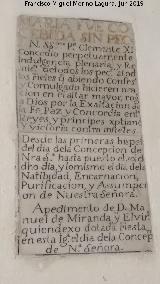 Francisco Miguel Merino Laguna. Jun 2019
MARIA
SIN PEC
N. SS.mo Pe. Clemente XI
concedio perpetuamente
Indulgencia Plenaria, y Re
de todos los pec.
los Fieles q abiendo Confes
y Comulgado hicieren ora
cion en el altar mayor, ro
a Dios por la Exaltacion de
Fe, Paz y Concordia entr
Reyes, y principes
y Victoria contra infieles.
Desde las primeras
del dia dela Concepcion de
Nra. Sa. hasta puesto el
dro dia, y lo mismo el dia dela
Natibidad, Encarnacion,
Purificacion, y Assumpcion
de Nuestra Señora.
Apedimento de D. Ma
nuel de Miranda y Elvir
quien dexo dotada fiesta
en esta Igl. el dia dela Concep
de Na. Señora.